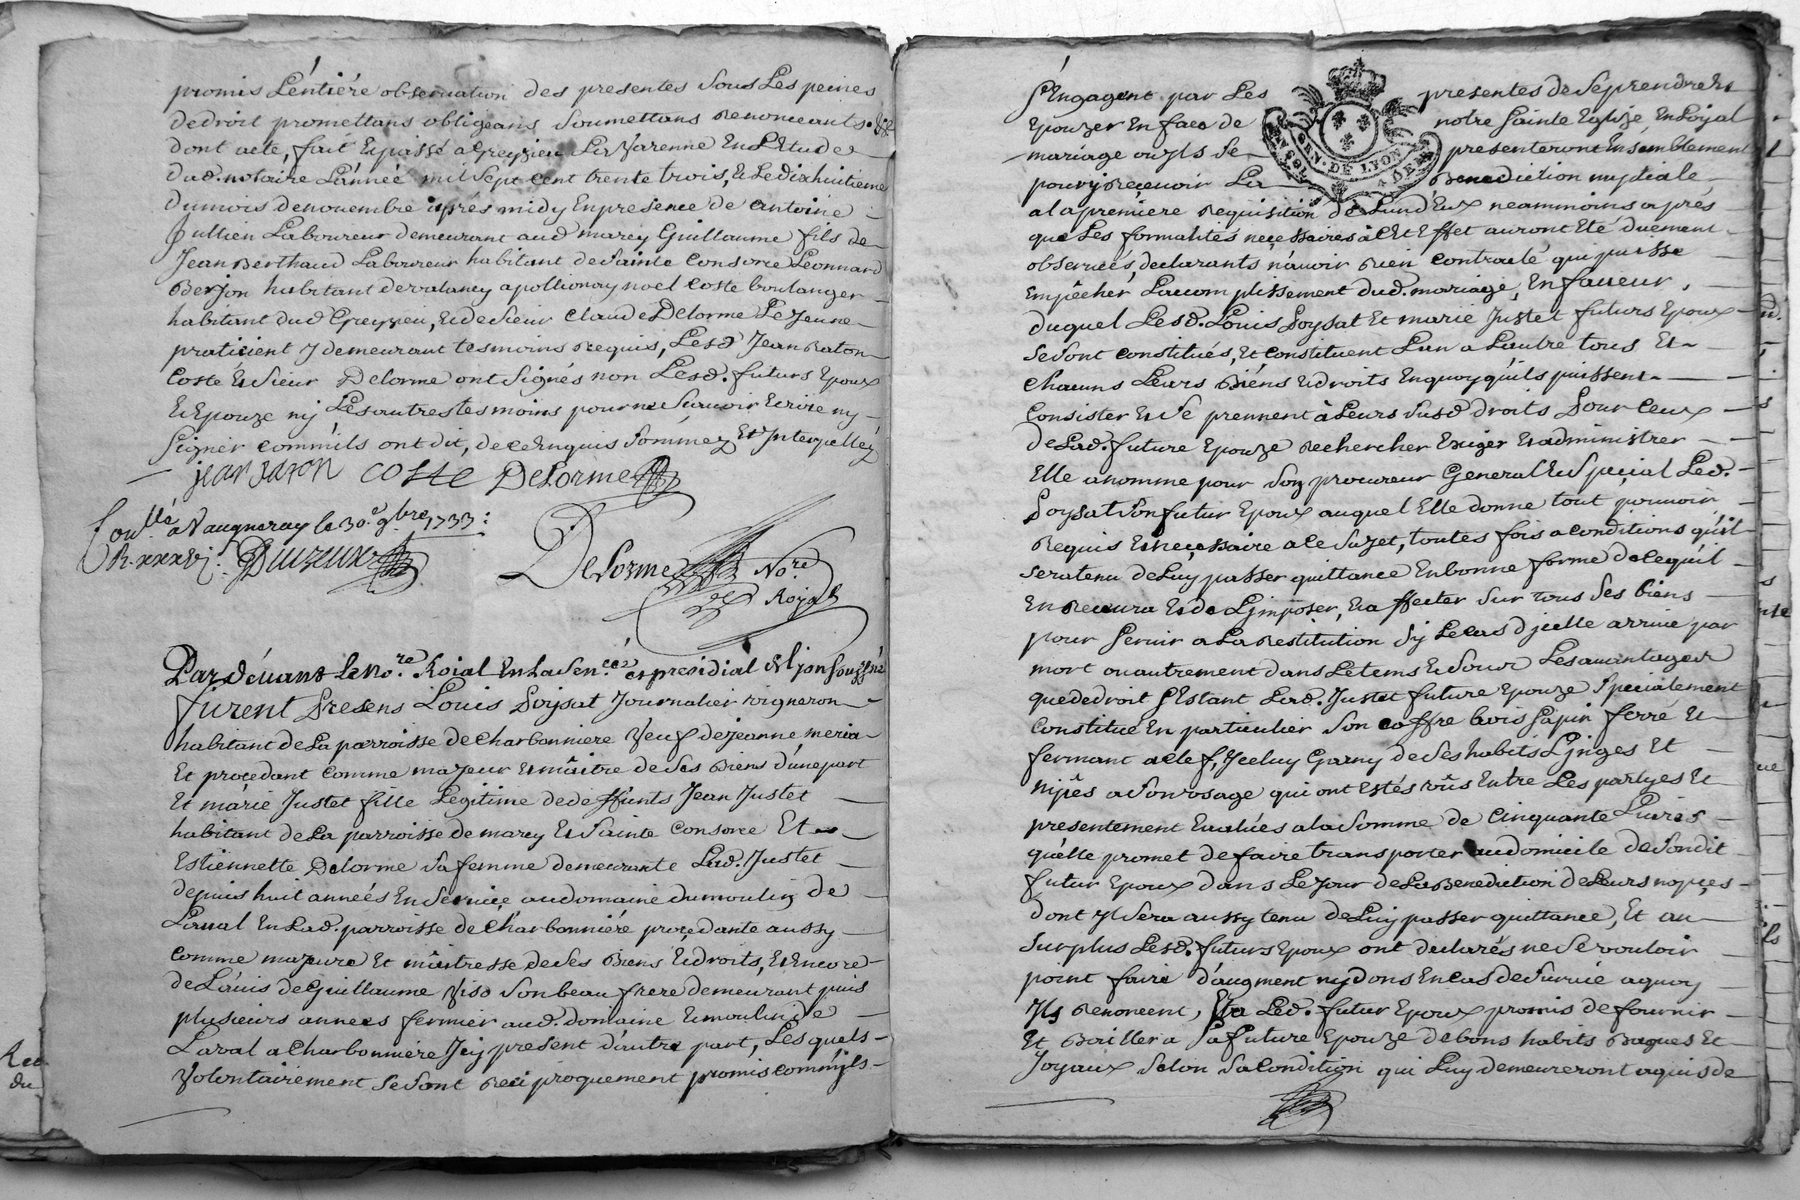 promis L'éntiére observation des presentes sous Les peines
dedroit promettans obligeans soumettans Renonceants. &c
dont acte, fait Et passé a Greyzieu La Varenne En L'Etude
dud. notaire L'année mil sept cent trente trois, Et Le dixhuitieme
dumois denovembre aprés midy En presence de antoine
Jullien Laboureur demeurant aud marcy Guillaume fils de
Jean Berthaud Laboureur habitant de sainte Consorce Leonnard
Berjon habitant devalancy apollionay noel Coste boulanger
habitant dud Greyzieu, Et de sieur Claude Delorme Le Jeune
praticient y demeurant tesmoins Requis, Lesd Jean Raton
Coste Et sieur Delorme ont signés non Lesd. futurs Epoux
Et Epouze ny Les autres tesmoins pour ne sçavoir Ecrire ny
signer comm'ils ont dit, de ce Enquis sommez Et Interpellez
jean raton Coste Delorme
Conllé a Vaugneray le 30.e 9bre 1733:
R. xxxvj s.
Delorme No.re
Royal
Pardévant le No.re Roial En la Sen.cée et presidial de Lyon souzsigné
furent Presens Louis Poysat Journalier vigneron
habitant de La parroisse de Charbonniere Veuf de jeanne meria
Et procedant comme majeur Et maître de ses Biens d'une part
Et márie Justet fille Legitime de deffunts Jean Justet
habitant de La parroisse de marcy Et sainte Consorce Et
Estiennette Delorme sa femme demeurante Lad. Justet
depuis huit années En service au domaine du moulin de
Laval En Lad. parroisse de Charbonniére procedante aussy
comme majeure Et maîtresse de ses Biens Et droits, Et Encore
de L'avis de Guillaume Viso son beau frere demeurant puis
plusieurs années fermier aud. domaine Et moulin de
Laval a Charbonniere Icy present d'autre part, Les quels
Volontairement se sont Reciproquement promis comm'jls
s'Engagent par Les presentes de se prendre Et
Epouzer En face de notre sainte Eglize En Loyal
mariage ou jls se presenteront Ensemblement
pour y Recevoir La Benediction nuptiale
a la premiere Requisition de L'un d'Eux neammoins aprés
que Les formalités necessaires a cet Effet auront Eté duement
observées, declarants n'avoir Rien contracté qui puisse
Empêcher L'accomplissement dud. mariage, En faveur
duquel Lesd. Louis Poysat Et marie Justet futurs Epoux
se sont constitués, Et constituent L'un a L'autre tous Et
chacuns Leurs Biéns Et droits En quoy qu'ils puissent
Consister Et se prennent à Leurs susd droits Pour Ceux
de Lad. future Epouze Rechercher Exiger Et administrer
Elle a nomme pour son procureur General Et Special Led.
Poysat son futur Epoux auquel Elle donne tout pouvoir
Requis Et necessaire a ce sujet, toutes fois a conditions qu'il
sera tenu de Luy passer quittance En bonne forme de ce qu'il
En Recevra Et de L'jmposer, Et affecter sur tous ses biens
pour servir a La Restitution sy Le cas d'jcelle arrive par
mort ou autrement dans Le tems Et sous Les avantages
que de droit s'Estant Lad. Justet future Epouze specialement
constitué En particulier son coffre bois sapin ferré Et
fermant a clef, Jceluy Garny de ses habits Ljnges Et
nipes a son usage qui ont Estés vûs Entre Les partyes Et
presentement Evalués a la somme de Cinquante Livres
qu'elle promet de faire transporter au domicile de sondit
futur Epoux dans Le jour de La Benediction de Leurs nopces
dont jl sera aussy tenu de Luy passer quittance, Et au
surplus Lesd. futurs Epoux ont declarés ne se vouloir
point faire d'augment ny dons En cas de survie a quoy
jls Renoncent, Et a Led. futur Epoux promis de fournir
Et Bailler a sa future Epouze de bons habits Bagues Et
Joyaux selon sa condition qui Luy demeureront aquis de
GEN. DE LYON